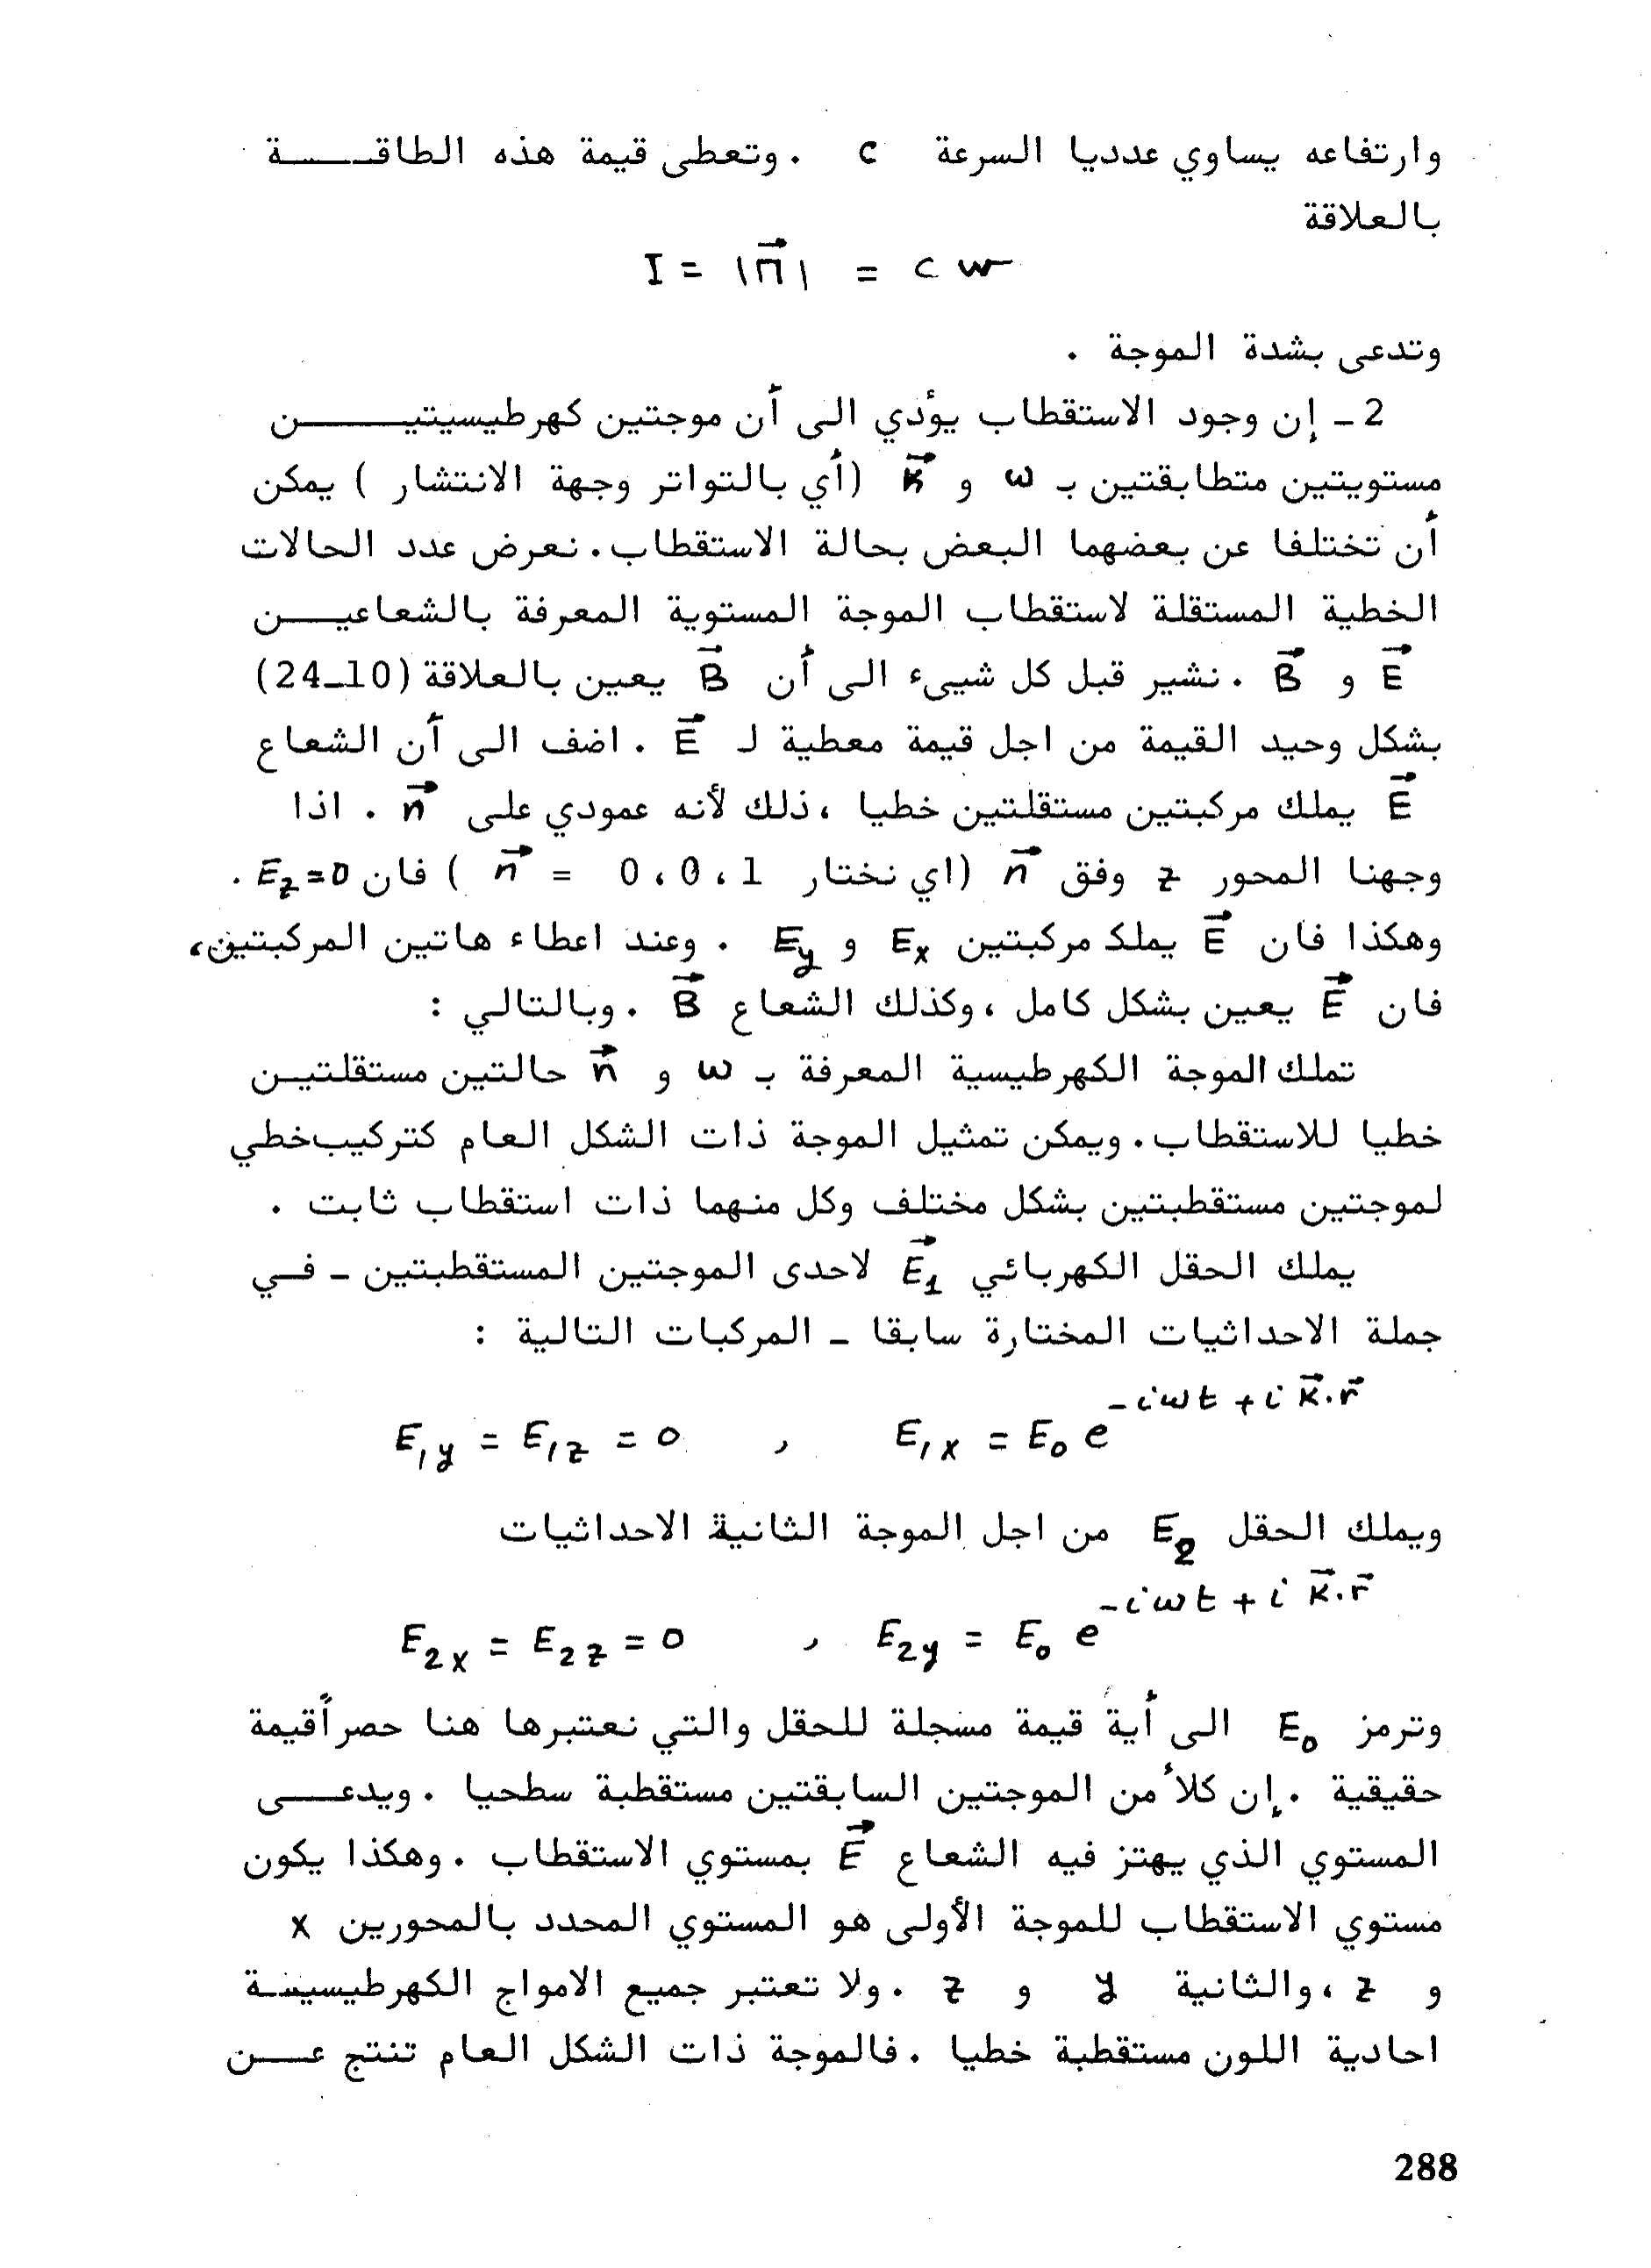 وارتفاعه يساوي عدديا السرعة c . وتعطى قيمة هذه الطاقـــــة
بالعلاقة
I = |Π⃗| = c w
وتدعى بشدة الموجة .
2 ـ إن وجود الاستقطاب يؤدي الى أن موجتين كهرطيسيتيـــــن
مستويتين متطابقتين بـ ω و K⃗ (أي بالتواتر وجهة الانتشار ) يمكن
أن تختلفا عن بعضهما البعض بحالة الاستقطاب. نعرض عدد الحالات
الخطية المستقلة لاستقطاب الموجة المستوية المعرفة بالشعاعيـــن
E⃗ و B⃗ . نشير قبل كل شيىء الى أن B⃗ يعين بالعلاقة (10ـ24)
بشكل وحيد القيمة من اجل قيمة معطية لـ E⃗ . اضف الى أن الشعاع
E⃗ يملك مركبتين مستقلتين خطيا ، ذلك لأنه عمودي على n⃗ . اذا
وجهنا المحور z وفق n⃗ (اي نختار n⃗ = 0 ، 0 ، 1 ) فان E_z=0 .
وهكذا فان E⃗ يملك مركبتين E_x و E_y . وعند اعطاء هاتين المركبتين،
فان E⃗ يعين بشكل كامل ، وكذلك الشعاع B⃗ . وبالتالي :
تملك الموجة الكهرطيسية المعرفة بـ ω و n⃗ حالتين مستقلتيـن
خطيا للاستقطاب. ويمكن تمثيل الموجة ذات الشكل العام كتركيب خطي
لموجتين مستقطبتين بشكل مختلف وكل منهما ذات استقطاب ثابت .
يملك الحقل الكهربائي E⃗_1 لاحدى الموجتين المستقطبتين ـ فـي
جملة الاحداثيات المختارة سابقا ـ المركبات التالية :
E_{1y} = E_{1z} = 0 , E_{1x} = E_0 e^{-iωt + i K⃗.r⃗}
ويملك الحقل E_2 من اجل الموجة الثانية الاحداثيات
E_{2x} = E_{2z} = 0 , E_{2y} = E_0 e^{-iωt + i K⃗.r⃗}
وترمز E_0 الى أية قيمة مسجلة للحقل والتي نعتبرها هنا حصراً قيمة
حقيقية . إن كلاً من الموجتين السابقتين مستقطبة سطحيا . ويدعـــى
المستوي الذي يهتز فيه الشعاع E⃗ بمستوي الاستقطاب . وهكذا يكون
مستوي الاستقطاب للموجة الأولى هو المستوي المحدد بالمحورين x
و z ، والثانية y و z . ولا تعتبر جميع الامواج الكهرطيسيـة
احادية اللون مستقطبة خطيا . فالموجة ذات الشكل العام تنتج عـــن
288